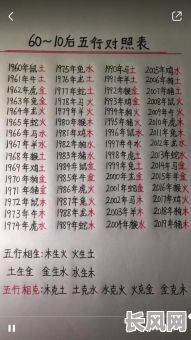 60~10后五行对照表
1960年鼠土 1975年兔水 1990年马土 2005年鸡水
1961年牛土 1976年龙土 1991年羊土 2006年狗土
1962年虎金 1977年蛇土 1992年猴金 2007年猪土
1963年兔金 1978年马火 1993年鸡金 2008年鼠火
1964年龙火 1979年羊火 1994年狗火 2009年牛火
1965年蛇火 1980年猴木 1995年猪火 2010年虎木
1966年马水 1981年鸡木 1996年鼠水 2011年兔木
1967年羊水 1982年狗水 1997年牛水 2012年龙水
1968年猴土 1983年猪水 1998年虎土 2013年蛇水
1969年鸡土 1984年鼠金 1999年兔土 2014年马金
1970年狗金 1985年牛金 2000年龙金 2015年羊金
1971年猪金 1986年虎火 2001年蛇金 2016年猴火
1972年鼠木 1987年兔火 2002年马木 2017年鸡火
1973年牛木 1988年龙木 2003年羊木 2018年狗木
1974年虎水 1989年蛇木 2004年猴水 2019年猪木
五行相生:木生火 火生土
土生金 金生水 水生木
五行相克:木克土 土克水 水克火 火克金 金克木
长风网